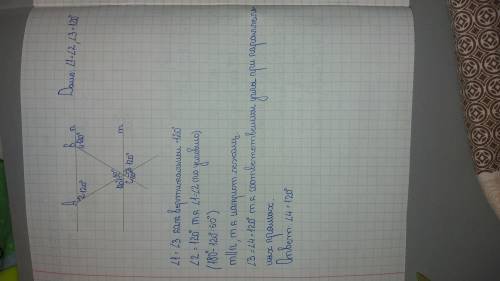 Дано: ∠1=∠2, ∠3=120°
A
B
n
m
∠1=∠3 как вертикальные=120°
∠2=120° т.к ∠1=∠2 (по условию)
(180°-120°=60°)
m||n, т.к
∠3=∠4=120° т.к соответственные углы при параллель
ных прямых.
Ответ: ∠4=120°